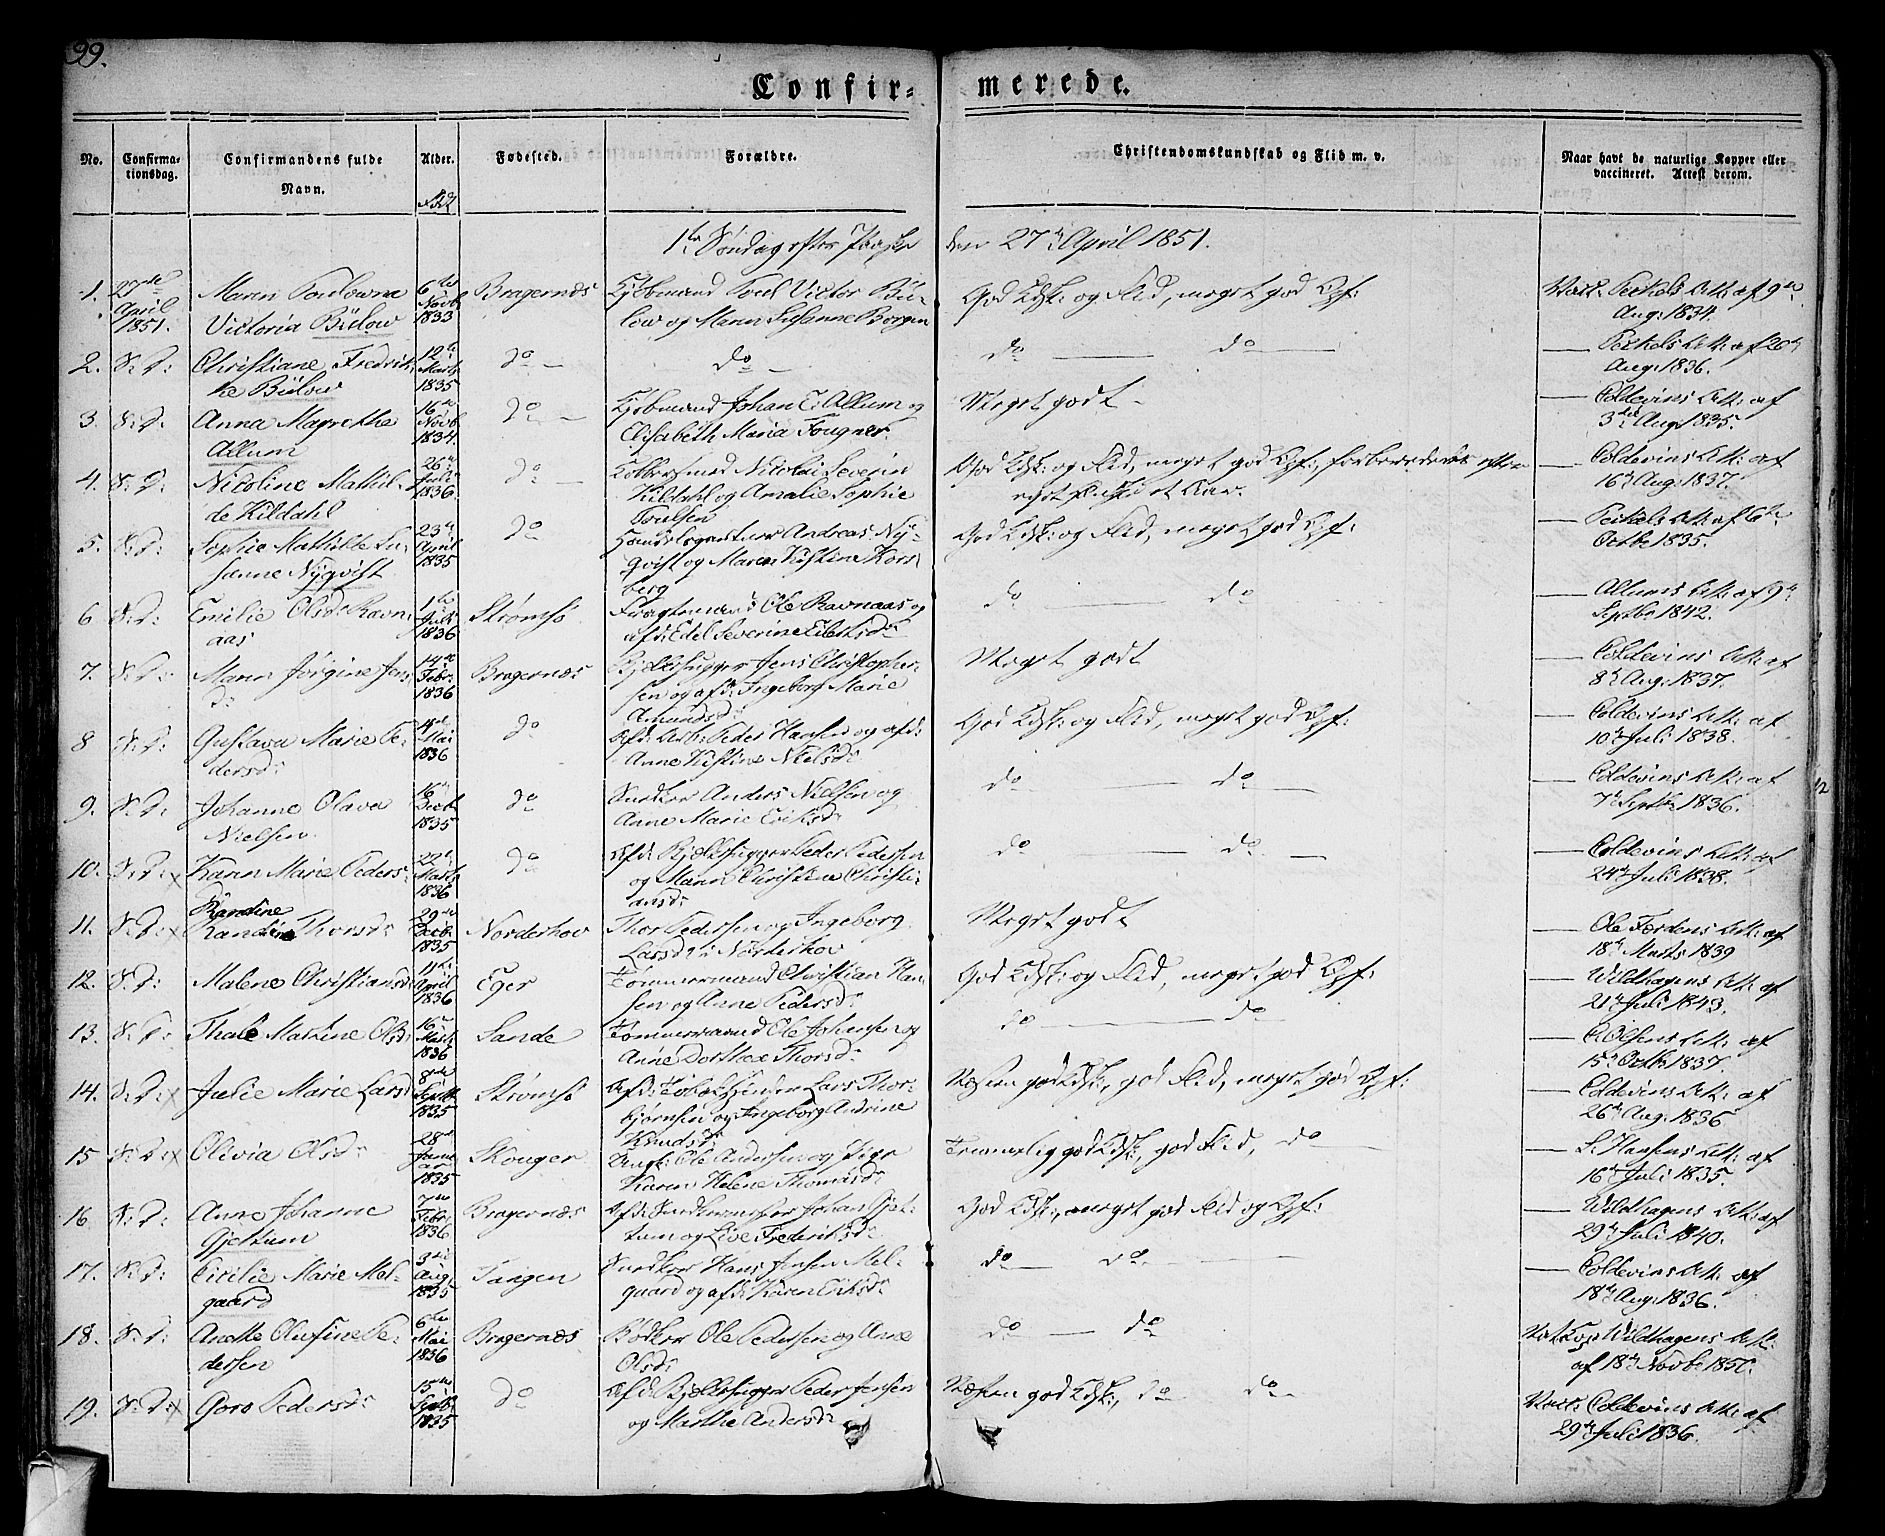 99.
Confir- merede.
No. Confirma-tionsdag. Confirmandens fulde Navn. Alder. Fødested. Forældre. Christendomskundskab og Flid m. v. Naar havt de naturlige Kopper eller vaccineret. Attest derom.
1te Søndag efter Paaske den 27de April 1851.
1. 27de April 1851. Maren Poulowna Victoria Bülow 6te Novb. 1833 Bragernæs Kjøbmand Poul Victor Bülow og Maren Susanne Borgen God Kdsk: og Flid, meget god Opf: Vacc. Peckels Att: af 9de Aug: 1834.
2. S: D: Christiane Fredrikke Bülow 12te Marts 1835 do do do do Peckels Att: af 20de Aug: 1836.
3. S: D: Anna Magrethe Allum 16de Novb 1834 do Kjøbmand Johan C: Allum og Elisabeth Maria Fougner. Meget godt Coldevins Att: af 3die Aug: 1835.
4. S: D: Nicoline Mathilde Kildahl 26de Juli 1836 do Kobbersmed Nicolai Severin Kildahl og Amalie Sophie Poulsen God Kdsk: og Flid, meget god Opf: Coldevins Att: af 16de Aug: 1837.
5. S: D: Sophie Mathilde Susanne Nyqvist 23de April 1835 do Andreas Nyqvist og Maren Kistine Korsberg God Kdsk: og Flid, meget god Opf: Peckels Att: af 6te Octbr 1835.
6 S: D: Emilie Olsd: Ravnaas 1te Juli 1836 Strømsø Fragtemand Ole Ravnaas og afd: Edel Severine Eibertsd: do do Allums Att: af 9de Septbr 1842.
7. S: D: Maren Jørgine Jensd: 14de Febr. 1836 Bragernæs Bjelkehugger Jens Christophersen og afd: Ingeborg Marie Amundsd: Meget godt Coldevins Att: af 8de Aug: 1837.
8 S: D: Gustava Marie Pedersd: 4de Mai 1836 do Afd: Arb: Peder Hansen og afd: Anne Kistine Nielsd: God Kdsk: og Flid, meget god Opf: Coldevins Att: af 10de Juli 1838.
9. S: D: Johanne Olava Nielsen 16de Decb. 1835 do Snedker Anders Nielsen og Anne Marie Eriksd: do do Coldevins Att: af 7de Septbr 1836.
10. S: D: x Karen Marie Peders: 22de Marts 1836 do Afd: Bjelkehugger Peder Pedersen og Maren Christine Christiansd: do do Coldevins Att: af 24de Juli 1838.
11. S: D: x Randine Thorsd: 29de Decb. 1835 Norderhov Thor Pedersen og Ingeborg Larsd: i Norderhov Meget godt Ole Færdens Att: af 18de Marts 1839
12. S: D: Malene Christiansd: 11te April 1836 Eger Tømmermand Christian Hansen og Anne Pedersd: God Kdsk: og Flid, meget god Opf: Wildhagens Att: af 21de Juli 1843.
13. S: D: Thale Maxine Olsd: 16de Marts 1836 Sande Tømmermand Ole Johansen og Anne Dorthea Thorsd: do do Olsens Att: af 15de Octbr 1837.
14. S: D: x Julie Marie Larsd: 8de Septb. 1835 Strømsø Afd: Tobakspinder Lars Thorbjørnsen og Ingeborg Andrine Knudsd: Næsten god Kdsk:, god Flid, meget god Opf: Coldevins Att: af 26de Aug: 1836
15 S: D: x Olivia Olsd: 28de Januar 1835 Skouger Ungk: Ole Andersen og Pige Karen Helene Thomasd: Temmelig god Kdsk:, god Flid, do S. Hansens Att: af 16de Juli 1835.
16 S: D: Anne Johanne Gjeltum 7de Febr. 1836 Bragernæs Afd: Johan Gjeltum og Live Frederiksd: God Kdsk:, meget god Flid og Opf: Wildhagens Att: af 29de Juli 1840.
17. S: D: Cicilie Marie Melgaard 3die Aug. 1835 Tangen Snedker Hans Jensen Melgaard og afd: Karen Eriksd: do do Coldevins Att: af 18de Aug: 1836.
18. S: D: Anette Olufine Pedersen 6te Mai 1836 Bragernæs Bødker Ole Pedersen og Anne Olsd: do do Wildhagens Att: af 18de Novb: 1850.
19. S: D: x Goro Pedersd: 15de Septb. 1835 do Afd: Bjelkehugger Peder Jensen og Marthe Andersd: Næsten god Kdsk:, do do Vacc: Coldevins Att: af 29de Juli 1836.